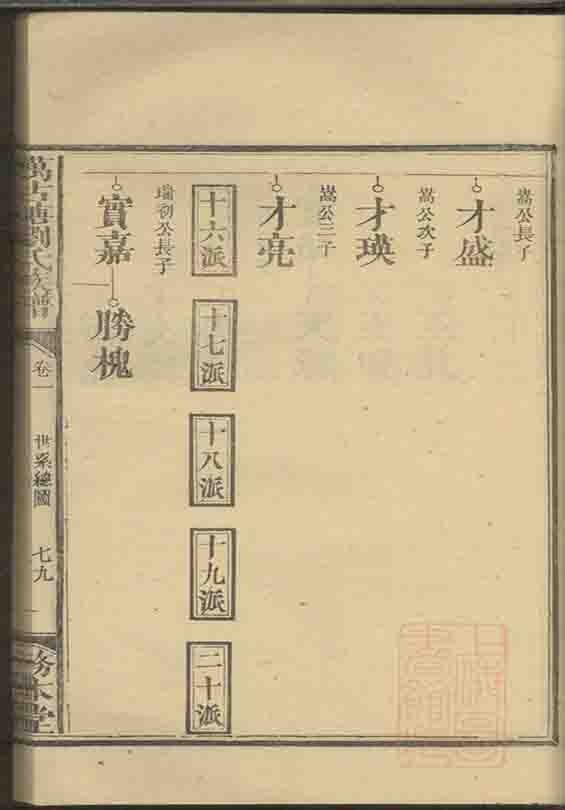 嵩公長子
才盛
嵩公次子
才瑛
嵩公三子
才亮
十六派
十七派
十八派
十九派
二十派
瑞初公長子
實嘉
勝槐
劉氏族譜
卷一
世系總圖
七九
務本堂